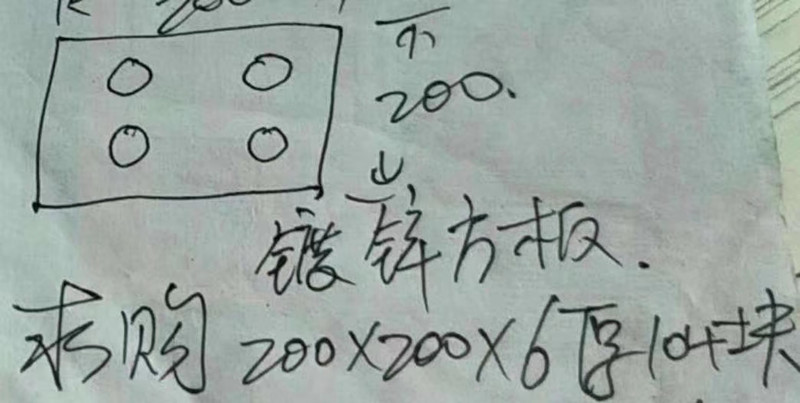 200
200.
镀锌方板.
求购 200×200×6厚104块